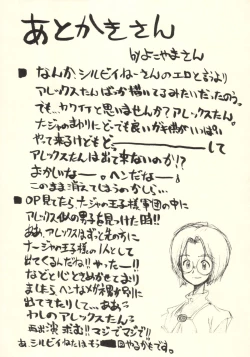 あとかきさん
byよこやまさん
■なんか、シルビィねーさんのエロと言うより
アレックスたんばっか描いてるみたいだったのう。
でも、カワイイと思いませんか?アレックスたん。
ナージャのまわりにどーでも良いガキ供がいっぱい
やって来るけどもどーーーーーして
アレックスたんは出て来ないのか!?
よかしいなー。ヘンだなー。
このまま消えてしまうのかしら…
■OP見てたらナージャの王子様軍団の中に
アレックス似の男子を見つけた時!!
ああ、アレックスはきっと先の方に
ナージャの王子様の1人として
出てくるんだね!!やったー!!
などと心ときめかせており
ましたら、ヘンなメガネ男が別に
出てきたりして…ああう
わしのアレックスたん?
再出演求む!!マジでマジで!!
シルビィねたはもう回やるかもです。